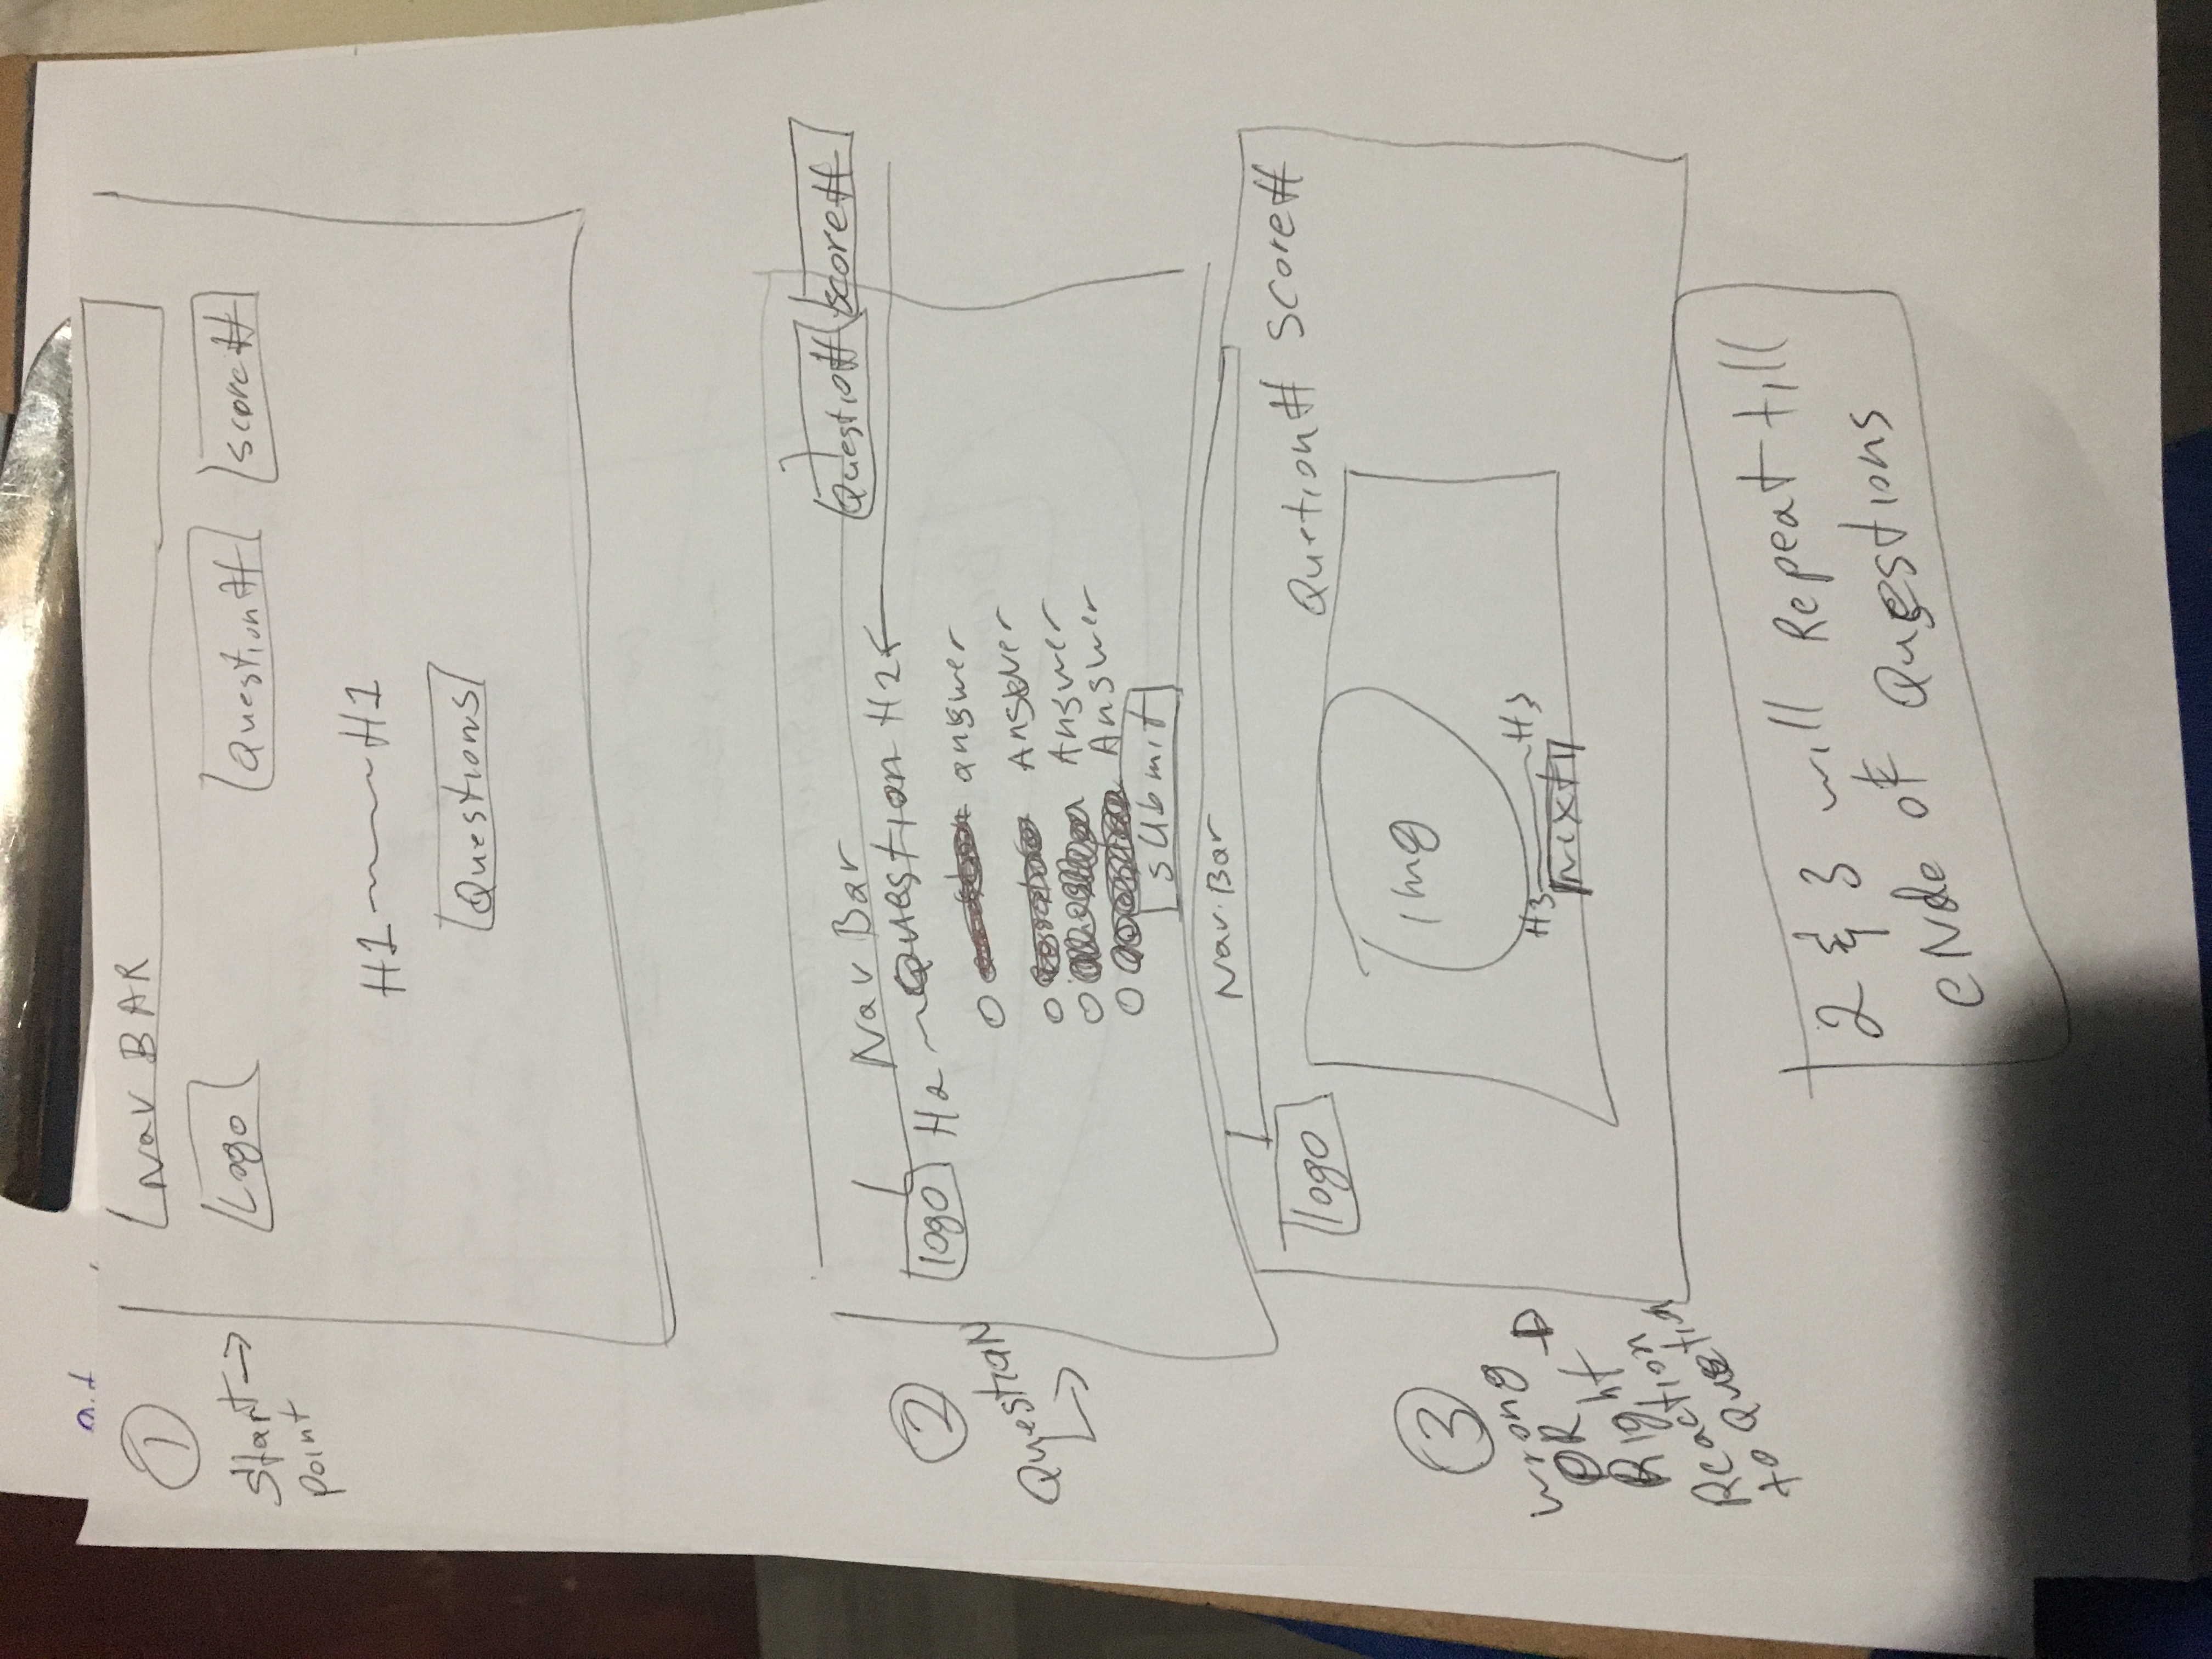 ①
Start
Point
Nav BAR
Logo
Question#
Score#
H1 H1
Questions
②
Question
Nav Bar
Questio#
Score#
logo
H2 Question H2
answer
Answer
Answer
Answer
submit
③
Wrong
OR
Right
Reaction
to Question
Nav.Bar
logo
Quetion# Score#
img
H3 H3
Next
2 & 3 will Repeat till
eNde of Questions